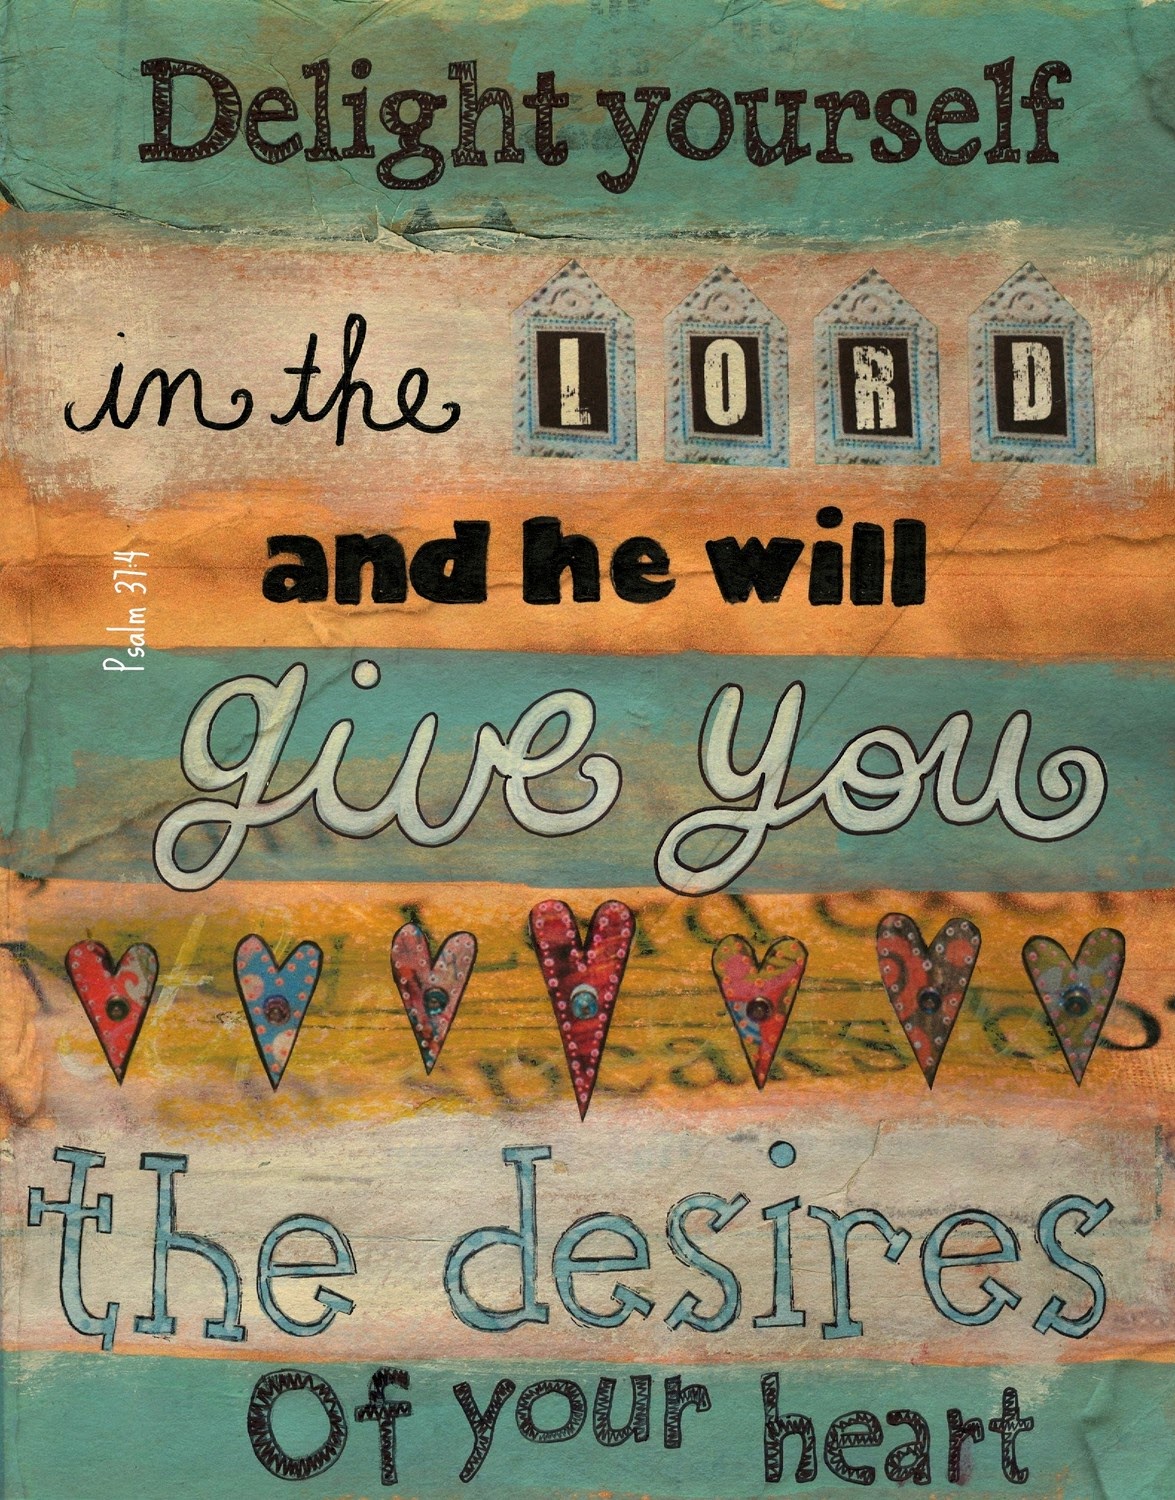 Delight yourself
in the LORD
and he will
Psalm 37:4
give you
the desires
Of your heart